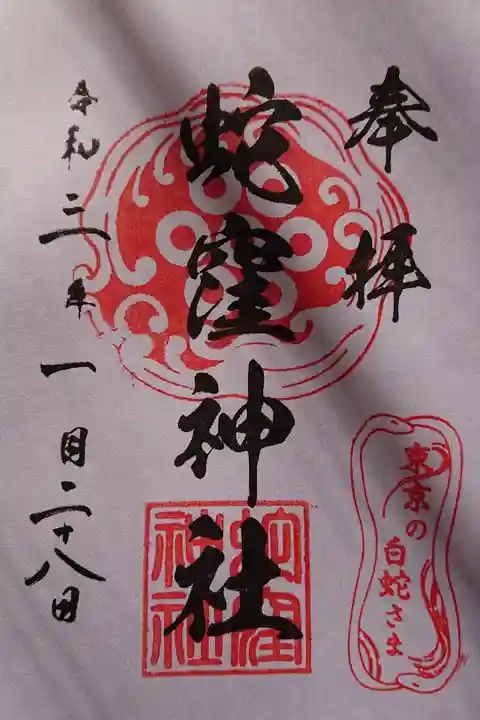 奉拝
蛇窪神社
令和三年一月二十八日
東京の
白蛇さま
蛇窪
神社